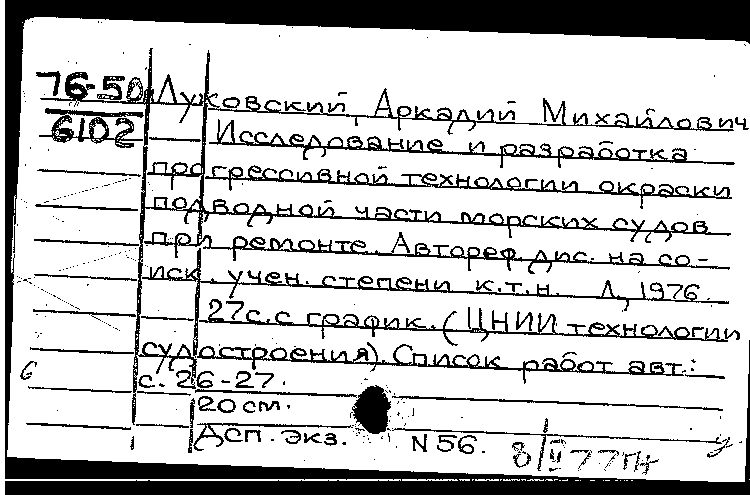 76-50
6102
Луковский, Аркадий Михайлович
Исследование и разработка
прогрессивной технологии окраски
подводной части морских судов
при ремонте. Автореф. дис. на со-
иск. учен. степени к.т.н. Л, 1976.
27с. с график. (ЦНИИ технологии
судостроения). Список работ авт.:
с. 26-27.
20 см.
Дсп. экз. N 56.
8/II 77
б